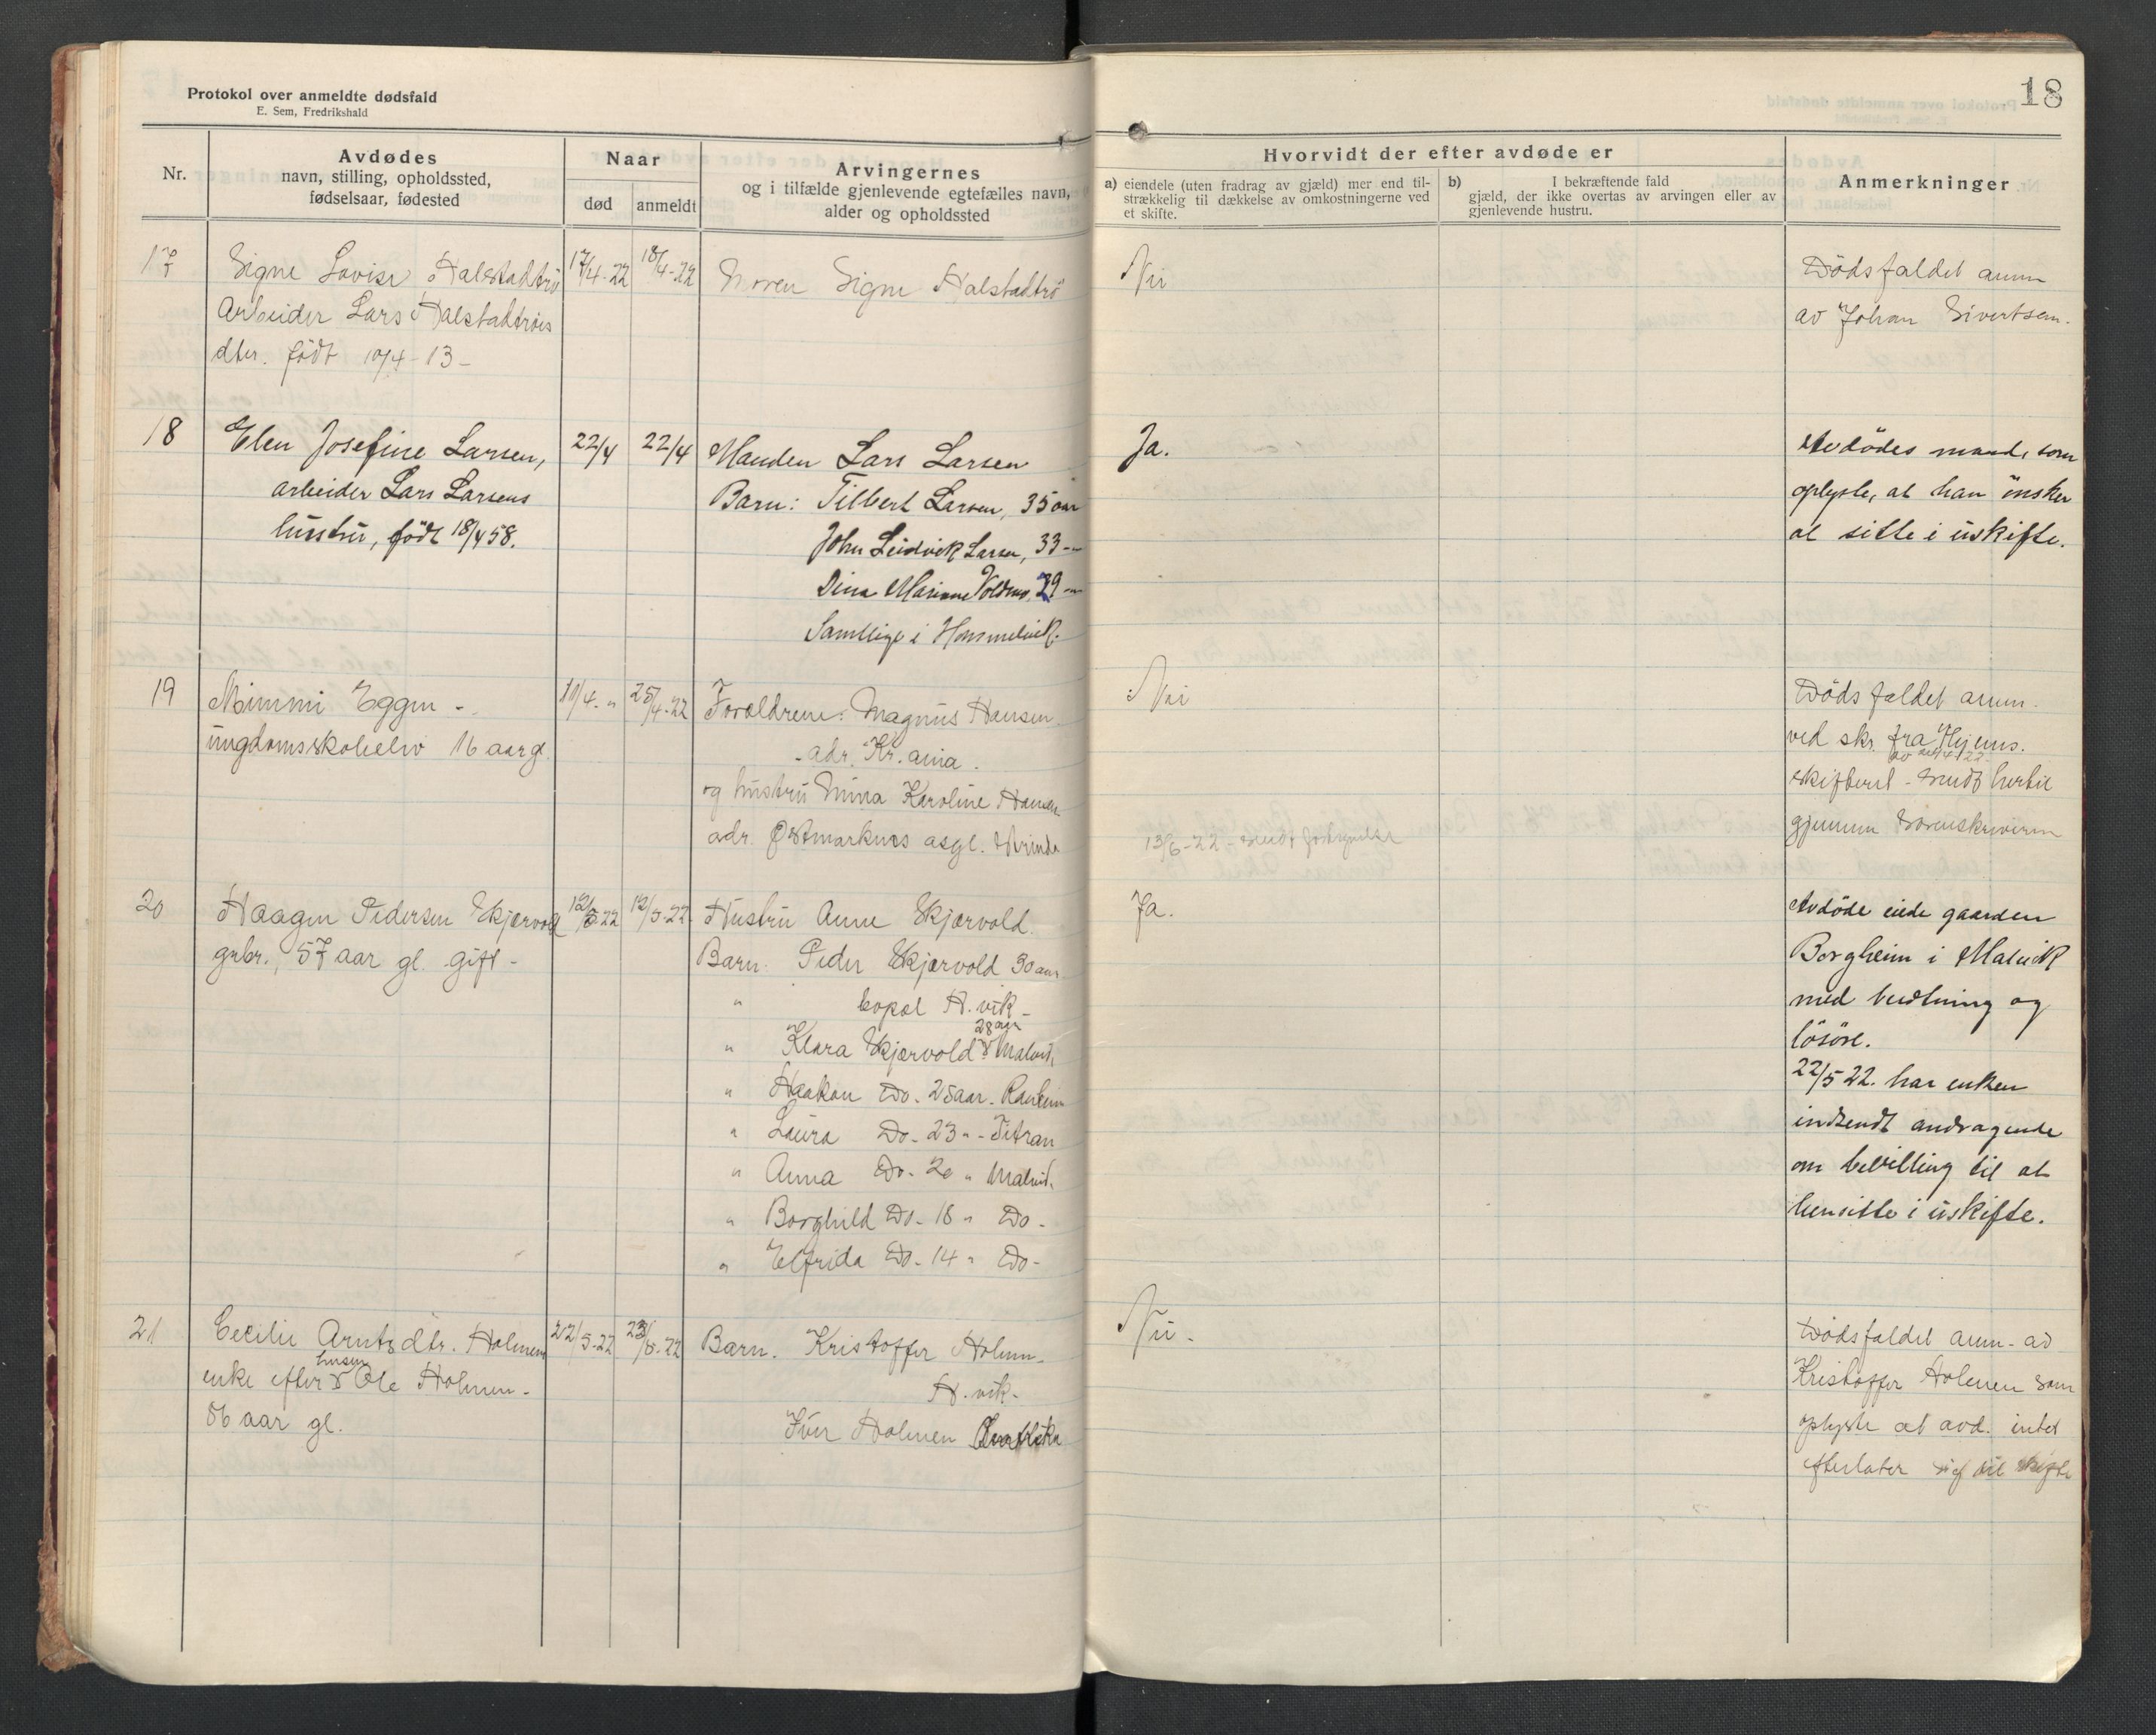 Protokol over anmeldte dødsfald
E. Sem, Fredrikshald
18
Nr.
Avdødes
navn, stilling, opholdssted,
fødselsaar, fødested
Naar
død
anmeldt
Arvingernes
og i tilfælde gjenlevende egtefælles navn,
alder og opholdssted
Hvorvidt der efter avdøde er
a) eiendele (uten fradrag av gjæld) mer end til-
strækkelig til dækkelse av omkostningerne ved
et skifte.
b) I bekræftende fald
gjæld, der ikke overtas av arvingen eller av
gjenlevende hustru.
Anmerkninger
17
Signe Lovise Halstadtrø
Arbeider Lars Halstadtrøes
dtr. født 10/4-13-
17/4-22
18/4-22
Moren Signe Halstadtrø
Nei
Dødsfaldet anm
av Johan Sivertsen.
18
Elen Josefine Larsen,
arbeider Lars Larsens
hustru, født 18/4 58.
22/4
22/4
Manden Lars Larsen
Barn: Tilbert Larsen, 35 aar
John Ludvik Larsen, 33 -"-
Dina Mariane Voldmo, 29 -"-
Samtlige i Hommelvik.
Ja.
Avdødes mand, som
oplyste, at han ønsker
at sitte i uskifte.
19
Mimmi Eggen -
ungdomsskoleelev 16 aar gl.
11/4. "
25/4-22
Forældrene: Magnus Hansen
- adr. Kr.ania.
og hustru Mina Karoline Hansen
adr. Østmarknes asyl. Strinda
Nei
13/6-22 - sendt
Dødsfaldet anm.
ved skr. fra Hjems.
av 22-
skifteret - sendt hertil
gjennem Sorenskriveren
20
Haagen Pedersen Skjærvold
gbr., 57 aar gl. gift -
12/5 22
12/5-22
Hustru Anne Skjærvold.
Barn: Peder Skjærvold 30 aar
" bopæl H.vik -
28 aar
" Klara Skjærvold Malvik.
" Haakon Do. 25 aar. Ranheim
" Laura Do - 23 " - Titran
" Anna Do - 20 " Malvik.
" Borghild Do - 18 " Do -
" Elfrida Do - 14 " Do -
Ja.
Avdøde eiede gaarden
Borgheim i Malvik
med besætning og
løsøre.
22/5 22. har enken
indsendt andragende
om bevilling til at
hensitte i uskifte.
21
Cecilie Arntsdtr. Holmen
husm
enke efter Ole Holmen -
86 aar gl.
22/5-22
23/5-22
Barn. Kristoffer Holmen -
H.vik -
Iver Holmen Amerika
Nei -
Dødsfaldet anm - av
Kristoffer Holmen som
oplyste at avd. intet
efterlater sig til skifte